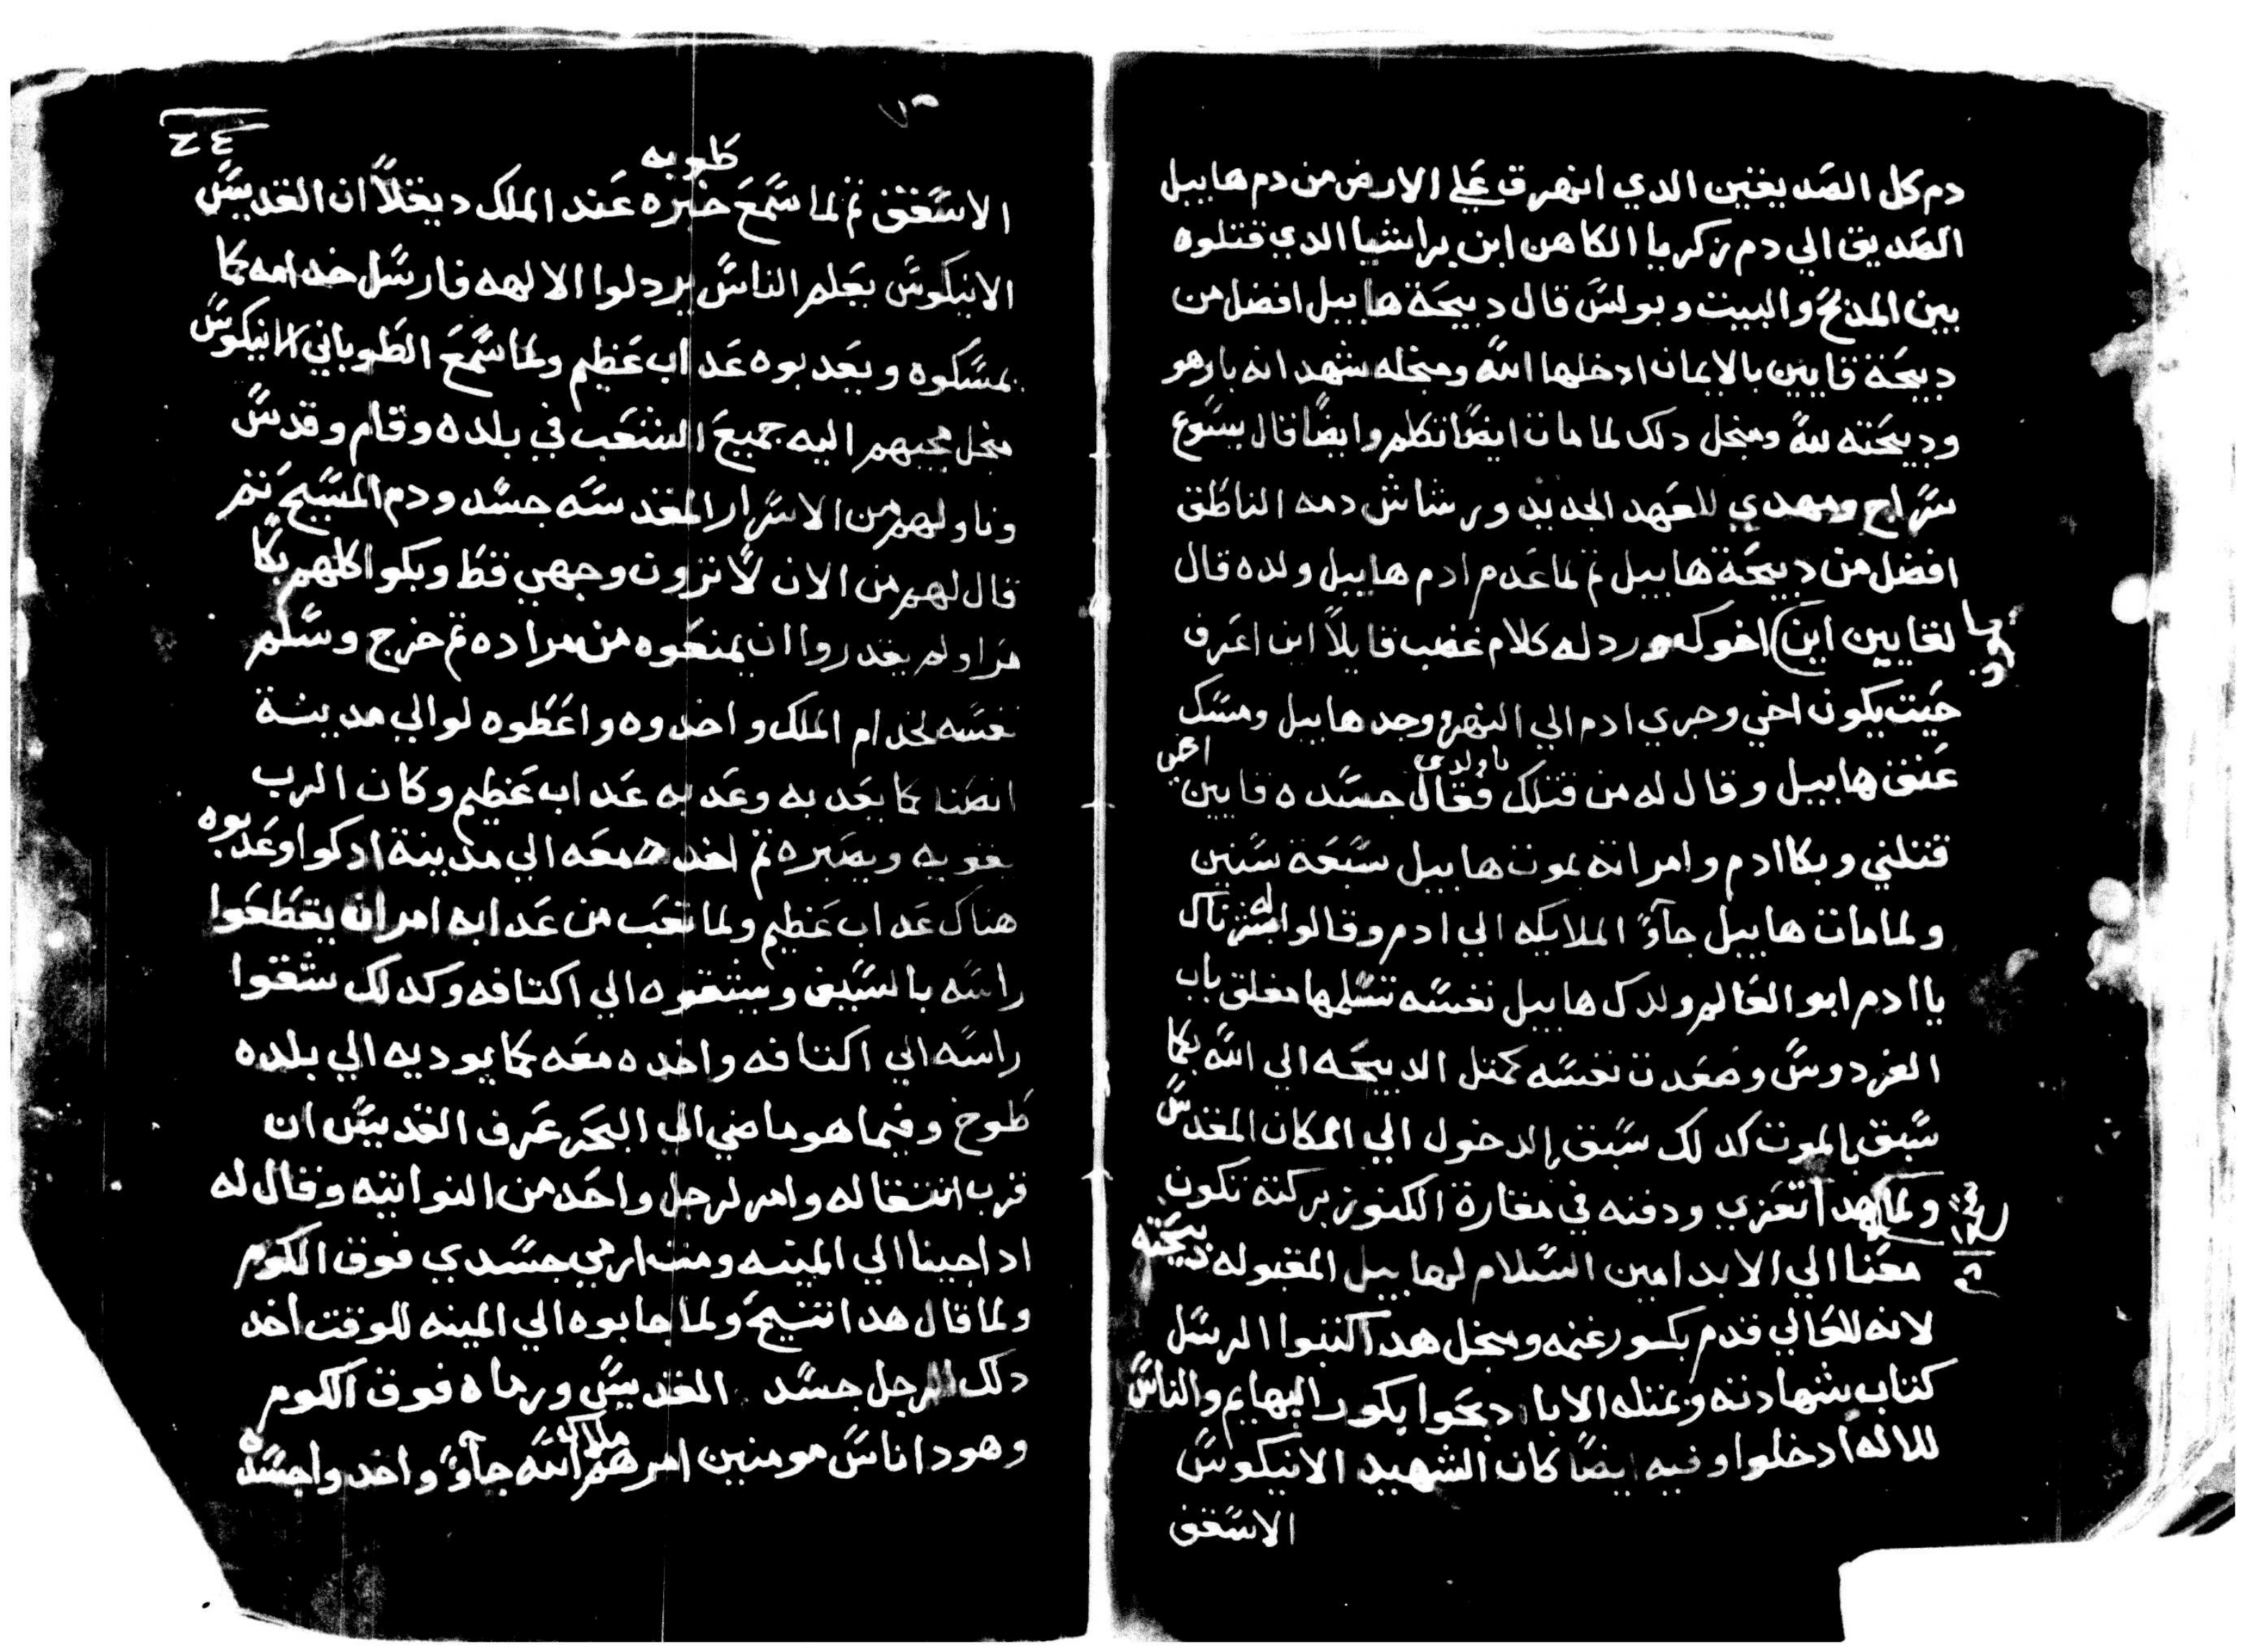 دم كل الصديقين الدي انهرق علي الارض من دم هابيل
الصديق الي دم زكريا الكاهن ابن براشيا الدي قتلوه
بين المدبح والبيت وبولس قال دبيحة هابيل افضل من
دبيحة قايين بالايمان ادخلها الله ومنجله شهد انه بار هو
ودبيحته لله ومنجل دلك لما مات ايضا تكلم وايضا قال يسوع
سراج ومهدي للعهد الجديد ورشاش دمه الناطق
افضل من دبيحة هابيل تم لما عدم ادم هابيل ولده قال
لقايين اين اخوك ورد له كلام غضب قايلا اين اعرف
حيت يكون اخي وجري ادم الي النهر وجد هابيل ومسك
عنق هابيل وقال له من قتلك ياولدي فقال جسده قايين اخي
قتلني وبكا ادم وامراته بموت هابيل سبعة سنين
ولما مات هابيل جاؤ الملايكه الي ادم وقالوا له
يا ادم ابو العالم ولدك هابيل نفسه تسلمها مغلق باب
الفردوس وصعدت نفسه كمتل الدبيحه الي الله بكما
سبق بالموت كدلك سبق بالدخول الي المكان المقدس
ولما بهدا تعزي ودفنه في مغارة الكنوز بركته تكون
معنا الي الابد امين السلام لهابيل المقبوله دبيحته
لانه للعالي قدم بكور غنمه ومنجل هدا كتبوا الرسل
كتاب شهادته وبمتله الابا دبحوا بكور البهايم والناس
للاله ادخلوا وفيه ايضا كان الشهيد الانيكوس
الاسقف
طوبه
الاسقف تم لما سمع خبره عند الملك ديقلا ان القديس
الانيكوس يعلم الناس يردلوا الالهه فارسل خدامه كما
يمسكوه ويعدبوه عداب عظيم ولما سمع الطوباني الانيكوس
منجل مجيهم اليه جميع الشعب في بلده وقام وقدس
وناولهم من الاسرار المقدسه جسد ودم المسيح تم
قال لهم من الان لا ترون وجهي قط وبكوا كلهم بكا
مرا ولم يقدروا ان يمنعوه من مراده تم خرج وسلم
نفسه لخدام الملك واخدوه واعطوه لوالي مدينة
انصنا كما يعدبه وعدبه عداب عظيم وكان الرب
يقويه ويصبره تم اخده معه الي مدينة ادكوا وعدبوه
هناك عداب عظيم ولما تعب من عدابه امر ان يقطعوا
راسه بالسيف ويشقوه الي اكتافه وكدلك شقوا
راسه الي اكتافه واخده معه كما يوديه الي بلده
طوخ وفيما هو ماضي الي البحر عرف القديس ان
قرب انتقاله وامر لرجل واحد من النواتيه وقال له
ادا جينا الي المينه ومت ارمي جسدي فوق الكوم
ولما قال هدا تنيح ولما جابوه الي المينه للوقت اخد
دلك الرجل جسد القديس ورماه فوق الكوم
وهودا ناس مومنين امرهم ملاك الله جاؤ واخدوا جسده